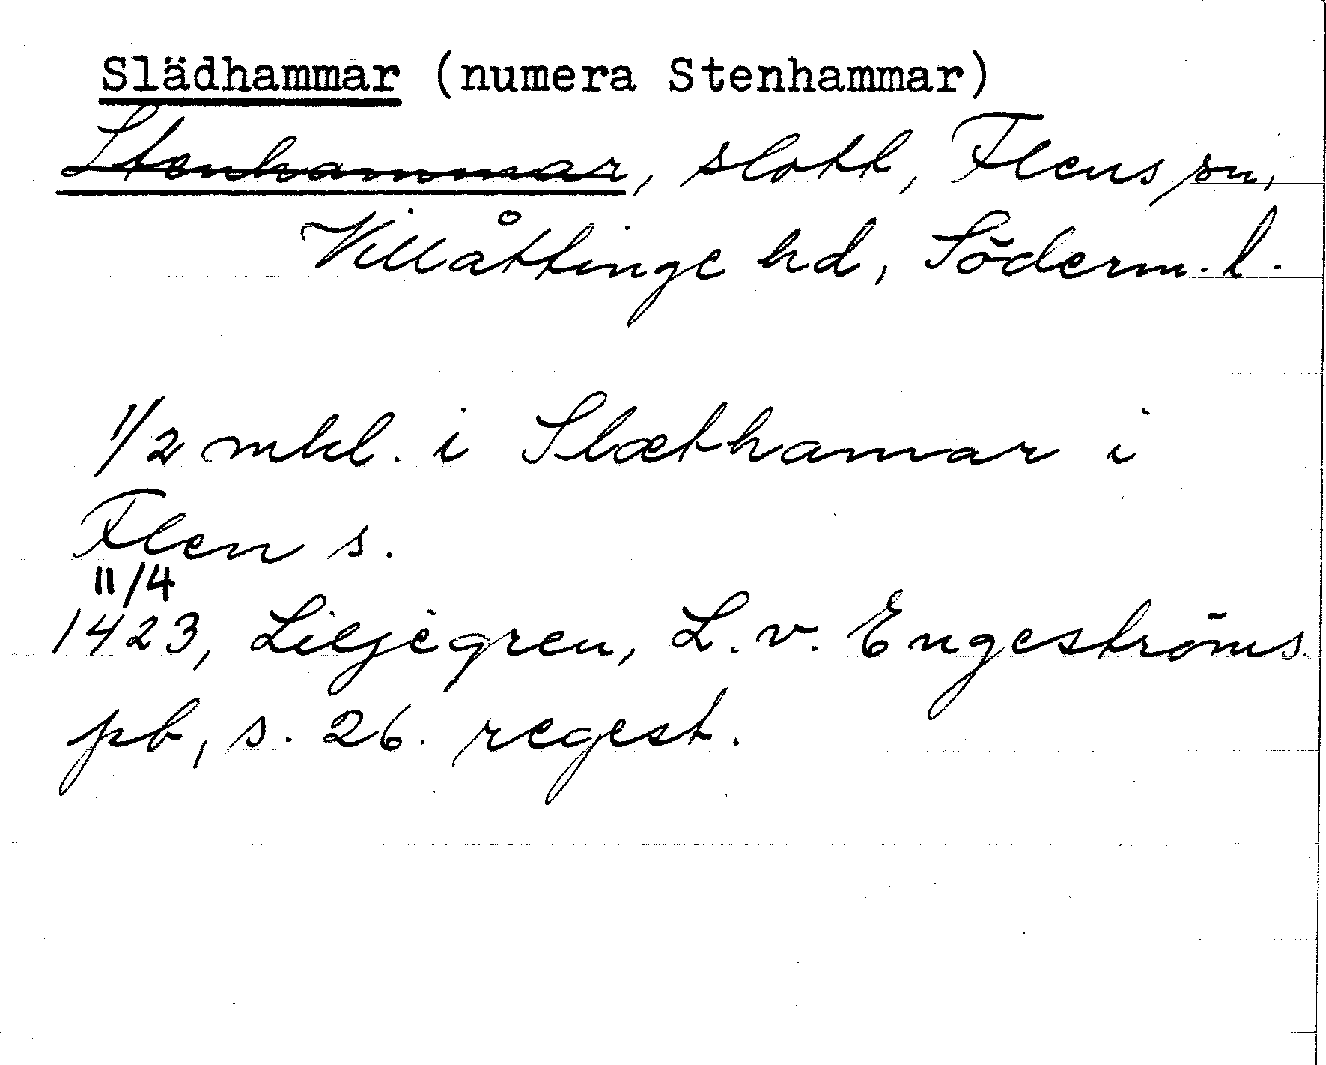 Slädhammar (numera Stenhammar)
Stenhammar, slott, Flens sn,
Villåttinge hd, Söderm. l.
1/2 mkl. i Slæthamar i
Flen s.
11/4
1423, Liljegren, L. v. Engeströms
pb, s. 26. regest.